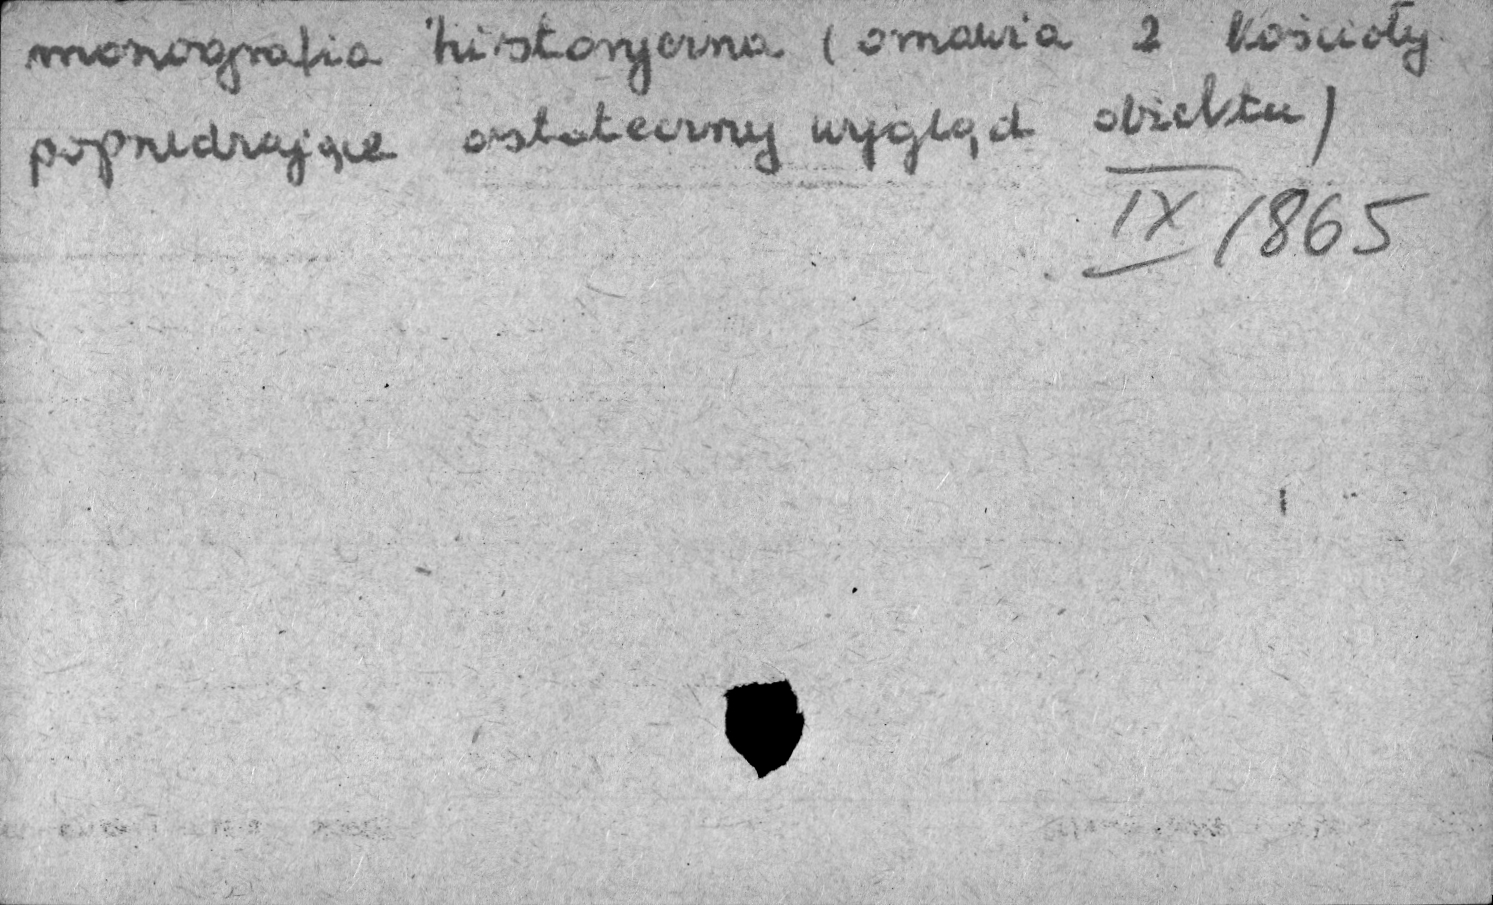 monografia historyczna (omawia 2 kościoły
poprzedzające ostateczny wygląd obiektu)
IX 1865